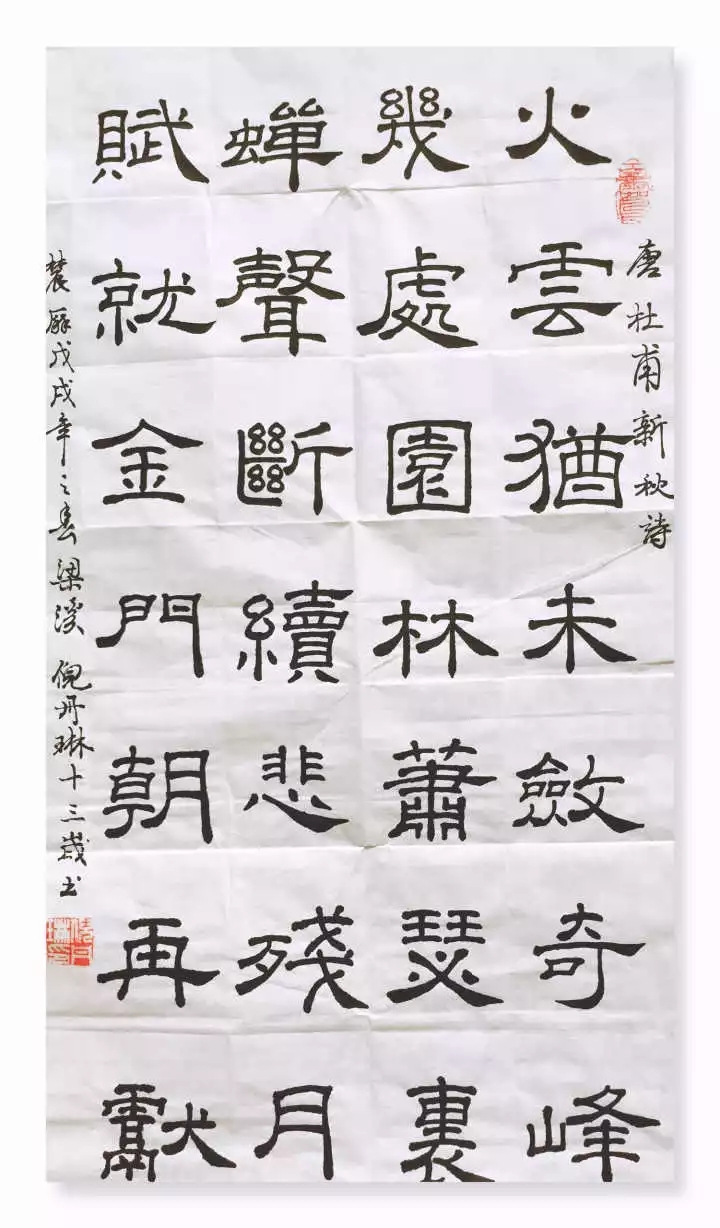 唐杜甫新秋詩
火雲猶未斂奇峰
幾處園林蕭瑟裏
蟬聲斷續悲殘月
賦就金門朝再獻
農曆戊戌年之春梁溪倪丹琳十三歲书